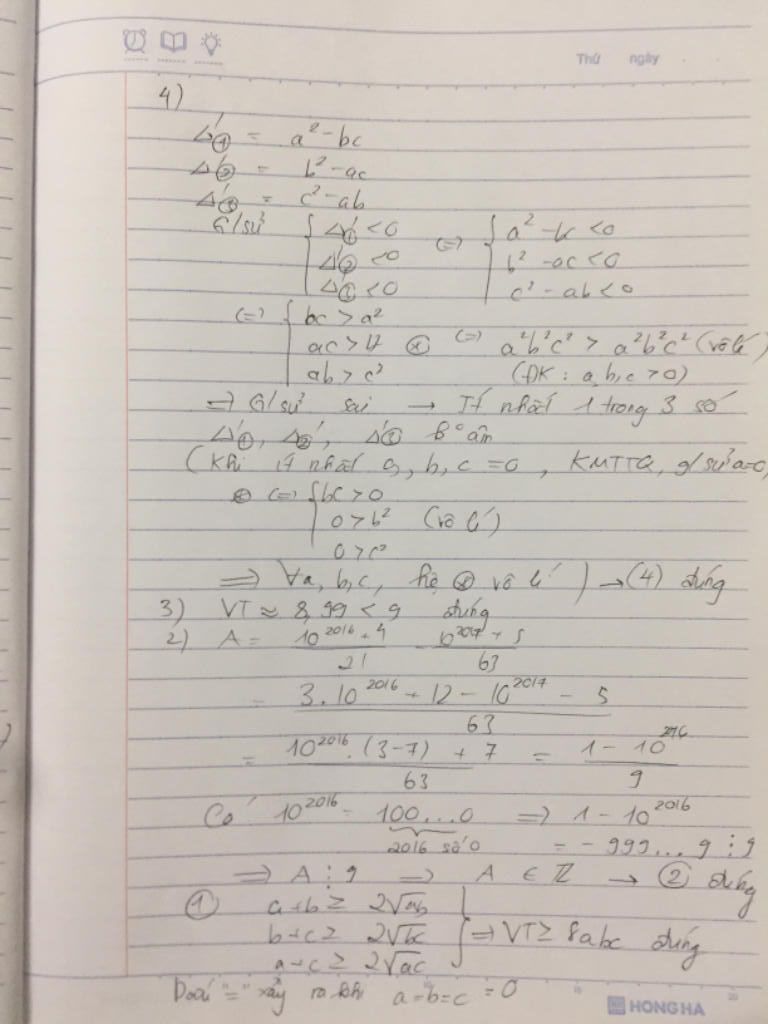 Thứ ngày
4)
Δ'① = a² - bc
Δ'② = b² - ac
Δ'③ = c² - ab
G/sử { Δ'① < 0 (=) { a² - bc < 0
Δ'② < 0 b² - ac < 0
Δ'① < 0 c² - ab < 0
(=) { bc > a²
ac > b² ⊛ (=) a²b²c² > a²b²c² (vô lí)
ab > c² (ĐK : a, b, c > 0)
=> G/sử sai → Ít nhất 1 trong 3 số
Δ'①, Δ'②, Δ'③ k° âm
(Khi ít nhất a, b, c = 0, KMTTQ, g/sử a=0,
⊛ (=) { bc > 0
0 > b² (vô lí)
0 > c²
=> ∀a, b, c, hệ ⊛ vô lí ) → (4) đúng
3) VT ≈ 8,99 < 9 đúng
2) A = (10²⁰¹⁶ + 4)/21 - (10²⁰¹⁷ + 5)/63
= (3.10²⁰¹⁶ + 12 - 10²⁰¹⁷ - 5)/63
= (10²⁰¹⁶.(3-7) + 7)/63 = (1 - 10²⁰¹⁶)/9
Có 10²⁰¹⁶ = 100...0 => 1 - 10²⁰¹⁶
2016 số 0 = - 999...9 ⋮ 9
=> A ⋮ 9 => A ∈ ℤ → ② đúng
① a+b ≥ 2√ab
b+c ≥ 2√bc } => VT ≥ 8abc đúng
a+c ≥ 2√ac
Dấu "=" xảy ra khi a=b=c =0
HONG HA